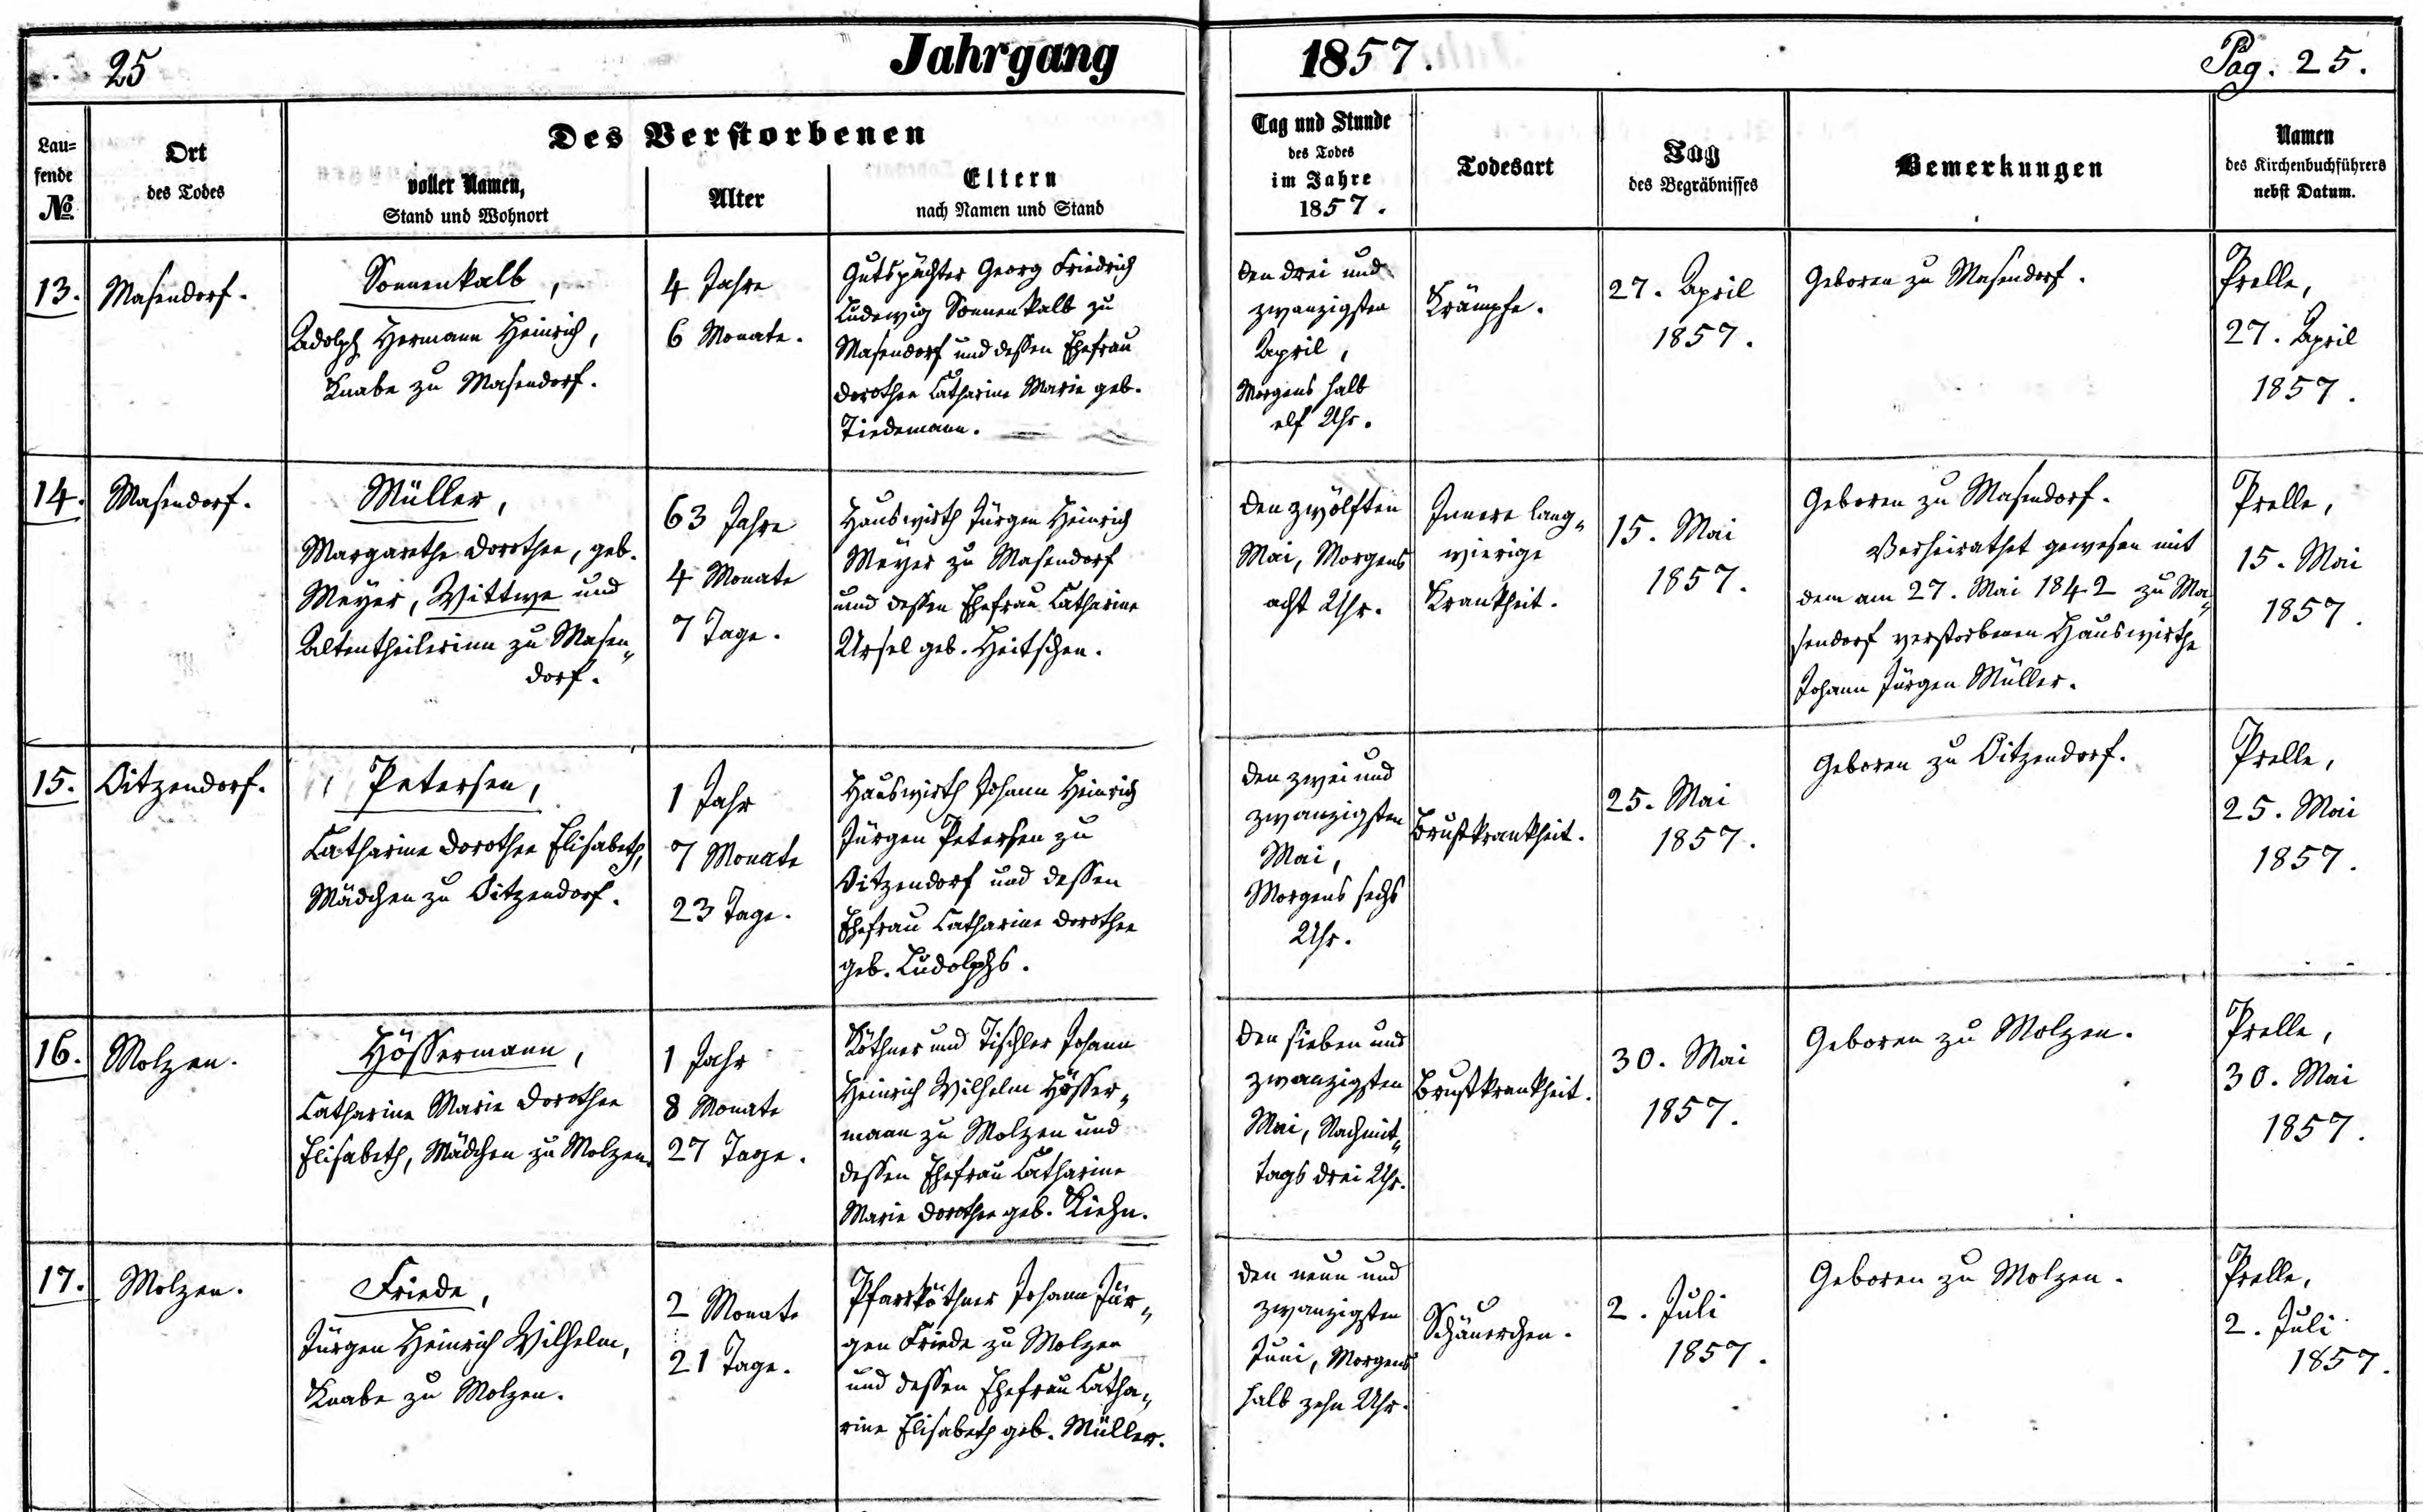 25
Jahrgang 1857.
Pag. 25.
Lau=
fende
No
Ort
des Todes
Des Verstorbenen
voller Namen,
Stand und Wohnort
Alter
Eltern
nach Namen und Stand
Tag und Stunde
des Todes
im Jahre
1857.
Todesart
Tag
des Begräbnisses
Bemerkungen
Namen
des Kirchenbuchführers
nebst Datum.
13.
Masendorf.
Sonnenkalb,
Adolph Hermann Heinrich,
Knabe zu Masendorf.
4 Jahre
6 Monate.
Gutspächter Georg Friedrich
Ludewig Sonnenkalb zu
Masendorf und dessen Ehefrau
Dorothee Catharine Marie geb.
Tiedemann.
den drei und
zwanzigsten
April,
Morgens halb
elf Uhr.
Krämpfe.
27. April
1857.
Geboren zu Masendorf.
Prelle,
27. April
1857.
14.
Masendorf.
Müller,
Margarethe Dorothee, geb.
Meyer, Wittwe und
Altentheilerinn zu Masen„
dorf.
63 Jahre
4 Monate
7 Tage.
Hauswirth Jürgen Heinrich
Meyer zu Masendorf
und dessen Ehefrau Catharine
Ursel geb. Heitschen.
den zwölften
Mai, Morgens
acht Uhr.
Innere lang„
wierige
Krankheit.
15. Mai
1857.
Geboren zu Masendorf.
Verheirathet gewesen mit
dem am 27. Mai 1842 zu Ma„
sendorf verstorbenen Hauswirthe
Johann Jürgen Müller.
Prelle,
15. Mai
1857.
15.
Oitzendorf.
Petersen,
Catharine Dorothee Elisabeth,
Mädchen zu Oitzendorf.
1 Jahr
7 Monate
23 Tage.
Hauswirth Johann Heinrich
Jürgen Petersen zu
Oitzendorf und dessen
Ehefrau Catharine Dorothee
geb. Ludolphs.
den zwei und
zwanzigsten
Mai,
Morgens sechs
Uhr.
Brustkrankheit.
25. Mai
1857.
Geboren zu Oitzendorf.
Prelle,
25. Mai
1857.
16.
Molzen.
Hössermann,
Catharine Marie Dorothee
Elisabeth, Mädchen zu Molzen.
1 Jahr
8 Monate
27 Tage.
Köthner und Tischler Johann
Heinrich Wilhelm Hösser„
mann zu Molzen und
dessen Ehefrau Catharine
Marie Dorothee geb. Kiehn.
den sieben und
zwanzigsten
Mai, Nachmit„
tags drei Uhr.
Brustkrankheit.
30. Mai
1857.
Geboren zu Molzen.
Prelle,
30. Mai
1857.
17.
Molzen.
Friede,
Jürgen Heinrich Wilhelm,
Knabe zu Molzen.
2 Monate
21 Tage.
Pfarrköthner Johann Jür„
gen Friede zu Molzen
und dessen Ehefrau Catha„
rine Elisabeth geb. Müller.
den neun und
zwanzigsten
Juni, Morgens
halb zehn Uhr.
Schäuerchen.
2. Juli
1857.
Geboren zu Molzen.
Prelle,
2. Juli
1857.